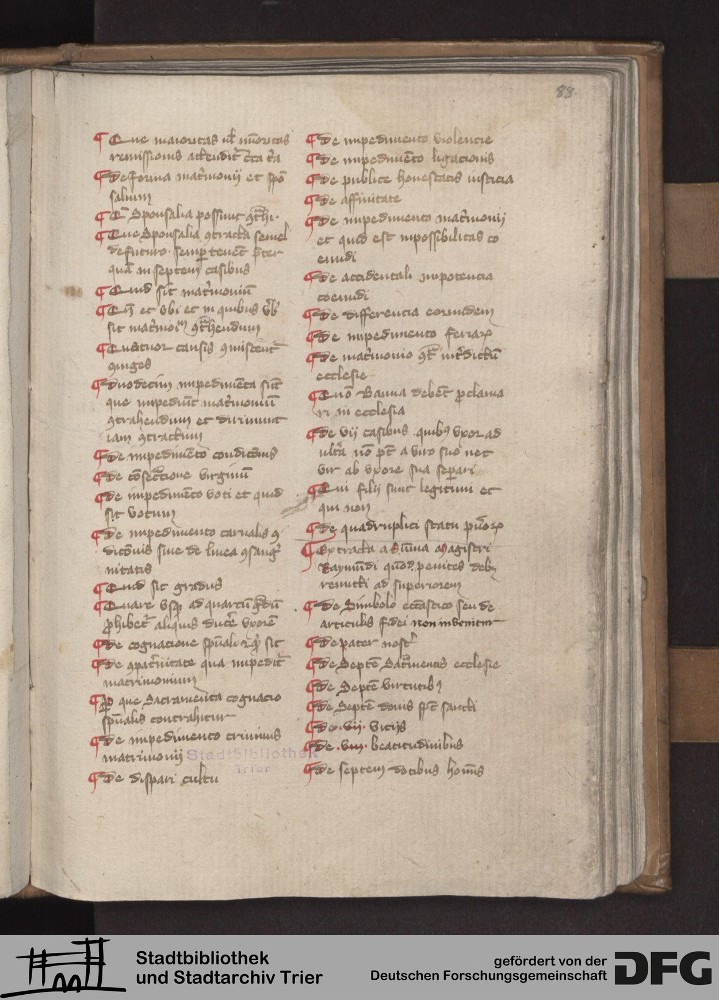 88.
¶ Que maioritas vl' mi͞oritas
remissionis
¶ De forma mat'monii et spo͞
salium
¶ Sponsalia possunt ꝯt͞hi.
¶ Que Sponsalia ꝯtracta semel
de futuro semp tene͞t p̄ter
qua͞ in septem casibus
¶ Quid sit mat'moniu͞
¶ et vbi et in quibus v͞b'
sit mat'moi͞u͞ ꝯt͞hendum
¶ causis
ꝯiuges
¶ Duodecim impedime͞ta su͞t
que impediu͞t mat'moniu͞
ꝯtrahendum et dirimunt
iam ꝯtractum
¶ De impedime͞to condic͞onis
¶ De virginu͞
¶ De impedime͞to voti et quid
sit votum
¶ De impedimento carnalis ꝯ
dic͞onis siue de linea ꝯsang'
nitatis
¶ Quid sit gradus
¶ Quare vsqꝫ ad quartu͞ g͞du͞
ꝓhibet' aliquis duce' vxore͞
¶ De cognacione sp͞uali sit
¶ De impedit'
matrimonium
¶ que Sacramenta cognacio
sp͞ualis contrahitur
¶ De impedimento criminis
matrimonij
¶ De dispari cultu
¶ De impedimento violencie
¶ De impedime͞to ligacionis
¶ De publice honestatis iusticia
¶ De affinitate
¶ De impedimento mat'monij
et quid est inpossibilitas co
eundi
¶ De accidentali impotencia
coeundi
¶ De differencia eorundem
¶ De impedimento feriaꝝ
¶ De mat'monio ꝯt' int'dictu͞
ecclesie
¶ Quo͞ Banna debe͞t ꝓclama
ri in ecclesia
¶ De vii casibus quibꝯ vxor ad
ult'a no͞ p͞t a viro suo nec
vir ab vxore sua sep̱ari
¶ Qui filij sunt legitimi et
qui non
¶ De quadruplici statu pu͞oꝝ
¶ Extracta a Su͞ma Magistri
Raymu͞di quod penites deb͞
remitti ad superiorem
¶ De Simbolo seu de
articulis fidei non inuenitur
¶ De pater nost'
¶ De Septe͞ Sac͞mentis ecclesie
¶ De Septe͞ virtutibꝯ
¶ De Septe͞ donis sp͞c sancti
¶ De .vii. vicijs
¶ De .viii. beatitudinibus
¶ De septem dotibus ho͞i͞s
Stadtbibliothek
Trier
Stadtbibliothek
und Stadtarchiv Trier
gefördert von der
Deutschen Forschungsgemeinschaft
DFG